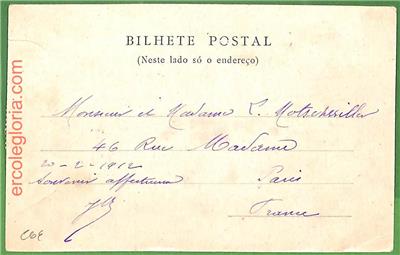 BILHETE POSTAL
(Neste lado só o endereço)
Monsieur et Madame L.
46 Rue Madame
20-2-1912
Souvenir affectueux Paris
France
ercolegloria.com